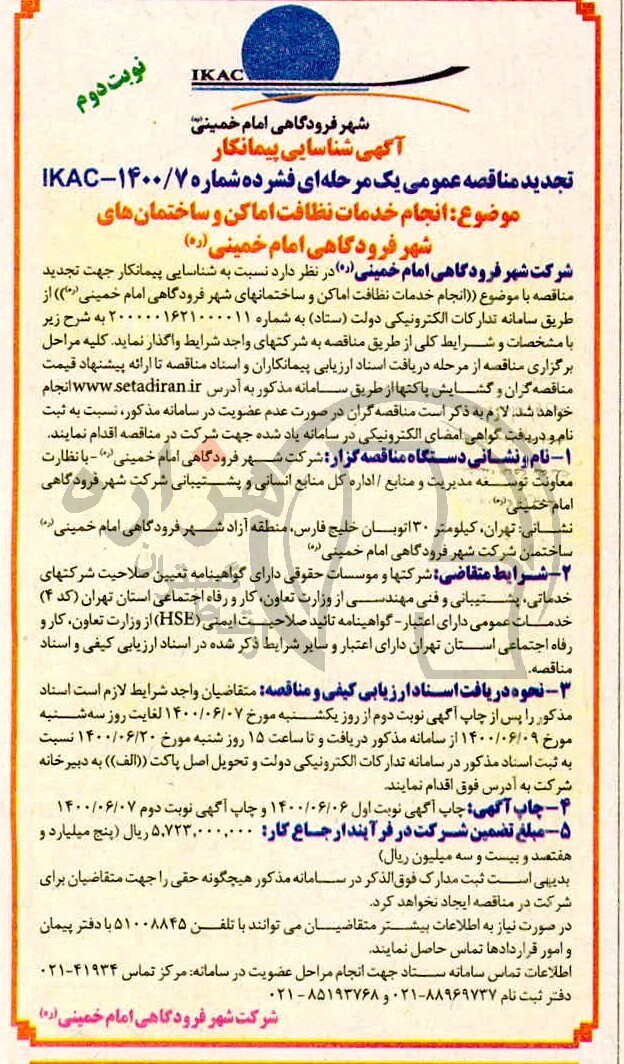 نوبت دوم
IKAC
شهر فرودگاهی امام خمینی(ره)
آگهی شناسایی پیمانکار
تجدید مناقصه عمومی یک مرحله‌ای فشرده شماره ۱۴۰۰/۷-IKAC
موضوع: انجام خدمات نظافت اماکن و ساختمان‌های
شهر فرودگاهی امام خمینی(ره)
شرکت شهر فرودگاهی امام خمینی(ره) در نظر دارد نسبت به شناسایی پیمانکار جهت تجدید
مناقصه با موضوع ((انجام خدمات نظافت اماکن و ساختمانهای شهر فرودگاهی امام خمینی(ره))) از
طریق سامانه تدارکات الکترونیکی دولت (ستاد) به شماره ۲۰۰۰۰۰۱۶۲۱۰۰۰۰۱۱ به شرح زیر
با مشخصات و شرایط کلی از طریق مناقصه به شرکتهای واجد شرایط واگذار نماید. کلیه مراحل
برگزاری مناقصه از مرحله دریافت اسناد ارزیابی پیمانکاران و اسناد مناقصه تا ارائه پیشنهاد قیمت
مناقصه‌گران و گشایش پاکتها از طریق سامانه مذکور به آدرس www.setadiran.ir انجام
خواهد شد. لازم به ذکر است مناقصه‌گران در صورت عدم عضویت در سامانه مذکور، نسبت به ثبت
نام و دریافت گواهی امضای الکترونیکی در سامانه یاد شده جهت شرکت در مناقصه اقدام نمایند.
۱-نام و نشانی دستگاه مناقصه‌گزار: شرکت شهر فرودگاهی امام خمینی(ره) -با نظارت
معاونت توسعه مدیریت و منابع / اداره کل منابع انسانی و پشتیبانی شرکت شهر فرودگاهی
امام خمینی(ره)
نشانی: تهران، کیلومتر ۳۰ اتوبان خلیج فارس، منطقه آزاد شهر فرودگاهی امام خمینی(ره)
ساختمان شرکت شهر فرودگاهی امام خمینی(ره)
۲-شرایط متقاضی: شرکتها و موسسات حقوقی دارای گواهینامه تعیین صلاحیت شرکتهای
خدماتی، پشتیبانی و فنی مهندسی از وزارت تعاون، کار و رفاه اجتماعی استان تهران (کد ۴)
خدمات عمومی دارای اعتبار - گواهینامه تائید صلاحیت ایمنی (HSE) از وزارت تعاون، کار و
رفاه اجتماعی استان تهران دارای اعتبار و سایر شرایط ذکر شده در اسناد ارزیابی کیفی و اسناد
مناقصه.
۳-نحوه دریافت اسناد ارزیابی کیفی و مناقصه: متقاضیان واجد شرایط لازم است اسناد
مذکور را پس از چاپ آگهی نوبت دوم از روز یکشنبه مورخ ۱۴۰۰/۰۶/۰۷ لغایت روز سه‌شنبه
مورخ ۱۴۰۰/۰۶/۰۹ از سامانه مذکور دریافت و تا ساعت ۱۵ روز شنبه مورخ ۱۴۰۰/۰۶/۲۰ نسبت
به ثبت اسناد مذکور در سامانه تدارکات الکترونیکی دولت و تحویل اصل پاکت ((الف)) به دبیرخانه
شرکت به آدرس فوق اقدام نمایند.
۴-چاپ آگهی: چاپ آگهی نوبت اول ۱۴۰۰/۰۶/۰۶ و چاپ آگهی نوبت دوم ۱۴۰۰/۰۶/۰۷
۵-مبلغ تضمین شرکت در فرآیند ارجاع کار: ۵,۷۲۳,۰۰۰,۰۰۰ ریال (پنج میلیارد و
هفتصد و بیست و سه میلیون ریال)
بدیهی است ثبت مدارک فوق‌الذکر در سامانه مذکور هیچگونه حقی را جهت متقاضیان برای
شرکت در مناقصه ایجاد نخواهد کرد.
در صورت نیاز به اطلاعات بیشتر متقاضیان می توانند با تلفن ۵۱۰۰۸۸۴۵ با دفتر پیمان
و امور قراردادها تماس حاصل نمایند.
اطلاعات تماس سامانه ستاد جهت انجام مراحل عضویت در سامانه: مرکز تماس ۴۱۹۳۴-۰۲۱
دفتر ثبت نام ۸۸۹۶۹۷۳۷-۰۲۱ و ۸۵۱۹۳۷۶۸-۰۲۱
شرکت شهر فرودگاهی امام خمینی(ره)